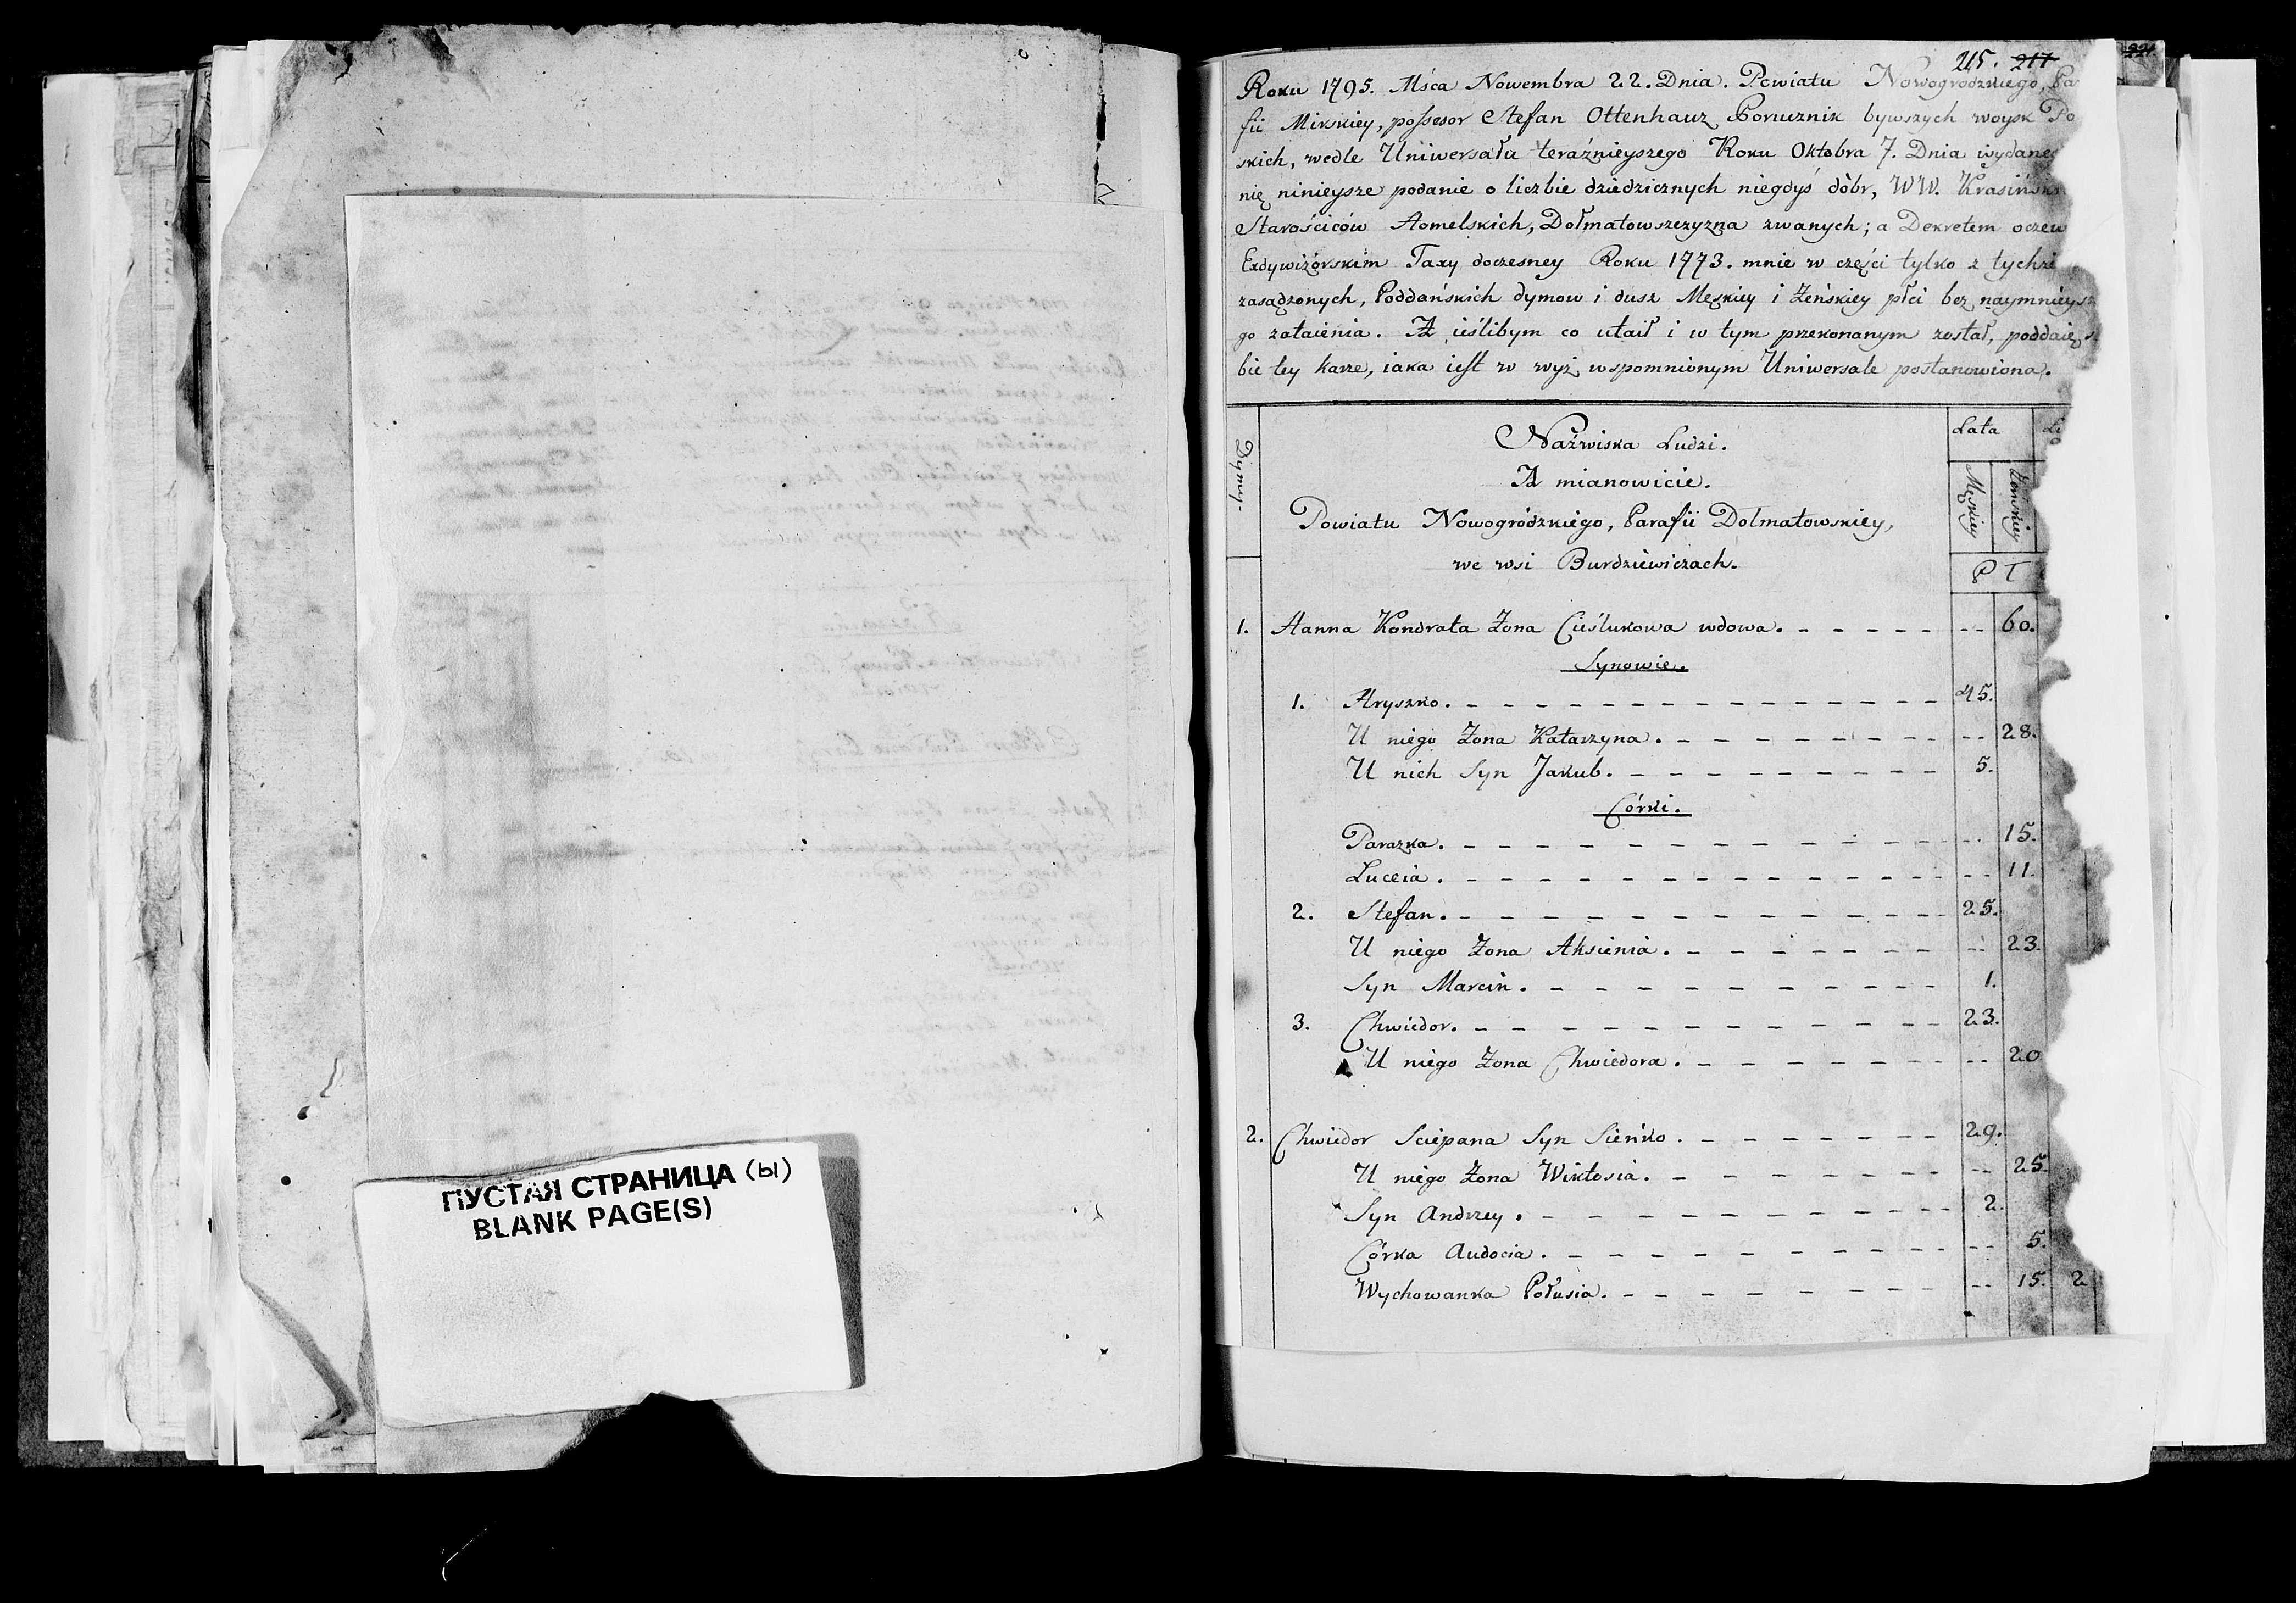 ПУСТАЯ СТРАНИЦА (ы)
BLANK PAGE(S)
215. 217
221.
Roku 1795. Mśca Nowembra 22. Dnia. Powiatu Nowogrodzkiego, Pa
fii Mirskiey, possesor Stefan Ottenhauz Porucznik bywszych woysk Po
skich, wedle Uniwersału teraźnieyszego Roku Oktobra 7. Dnia wydane
nię ninieysze podanie o liczbie dziedzicznych niegdyś dóbr, WW. Krasińsk
Starościców Homelskich, Dołmatowszczyzna zwanych; a Dekretem oczew
Exdywizórskim Taxy doczesney Roku 1773. mnie w części tylko z tychże
zasądzonych, Poddańskich dymow i dusz Męskiey i Zeńskiey płci bez naymnieysz
go zataienia. A ieślibym co utaił i w tym przekonanym został, poddaię s
bie tey karze, iaka iest w wyż wspomnionym Uniwersale postanowiona.
Dymy.
Nazwiska Ludzi.
A mianowicie.
Powiatu Nowogródzkiego, Parafii Dolmatowskiey,
we wsi Burdziewiczach.
Lata
Li
Męskiey
Zenskiey
P T
1. Hanna Kondrata Zona Cieślukowa wdowa. 60.
Synowie.
1. Hryszko. 45.
U niego Zona Katarzyna. 28.
U nich Syn Jakub. 5.
Córki.
Parazka. 15.
Luceia. 11.
2. Stefan. 25.
U niego Zona Aksienia. 23.
Syn Marcin. 1.
3. Chwiedor. 23.
U niego Zona Chwiedora. 20
2. Chwiedor Sciepana Syn Sieńko. 29.
U niego Zona Wiktosia. 25.
Syn Andrzey. 2.
Córka Audocia. 5.
Wychowanka Połusia. 15. 2